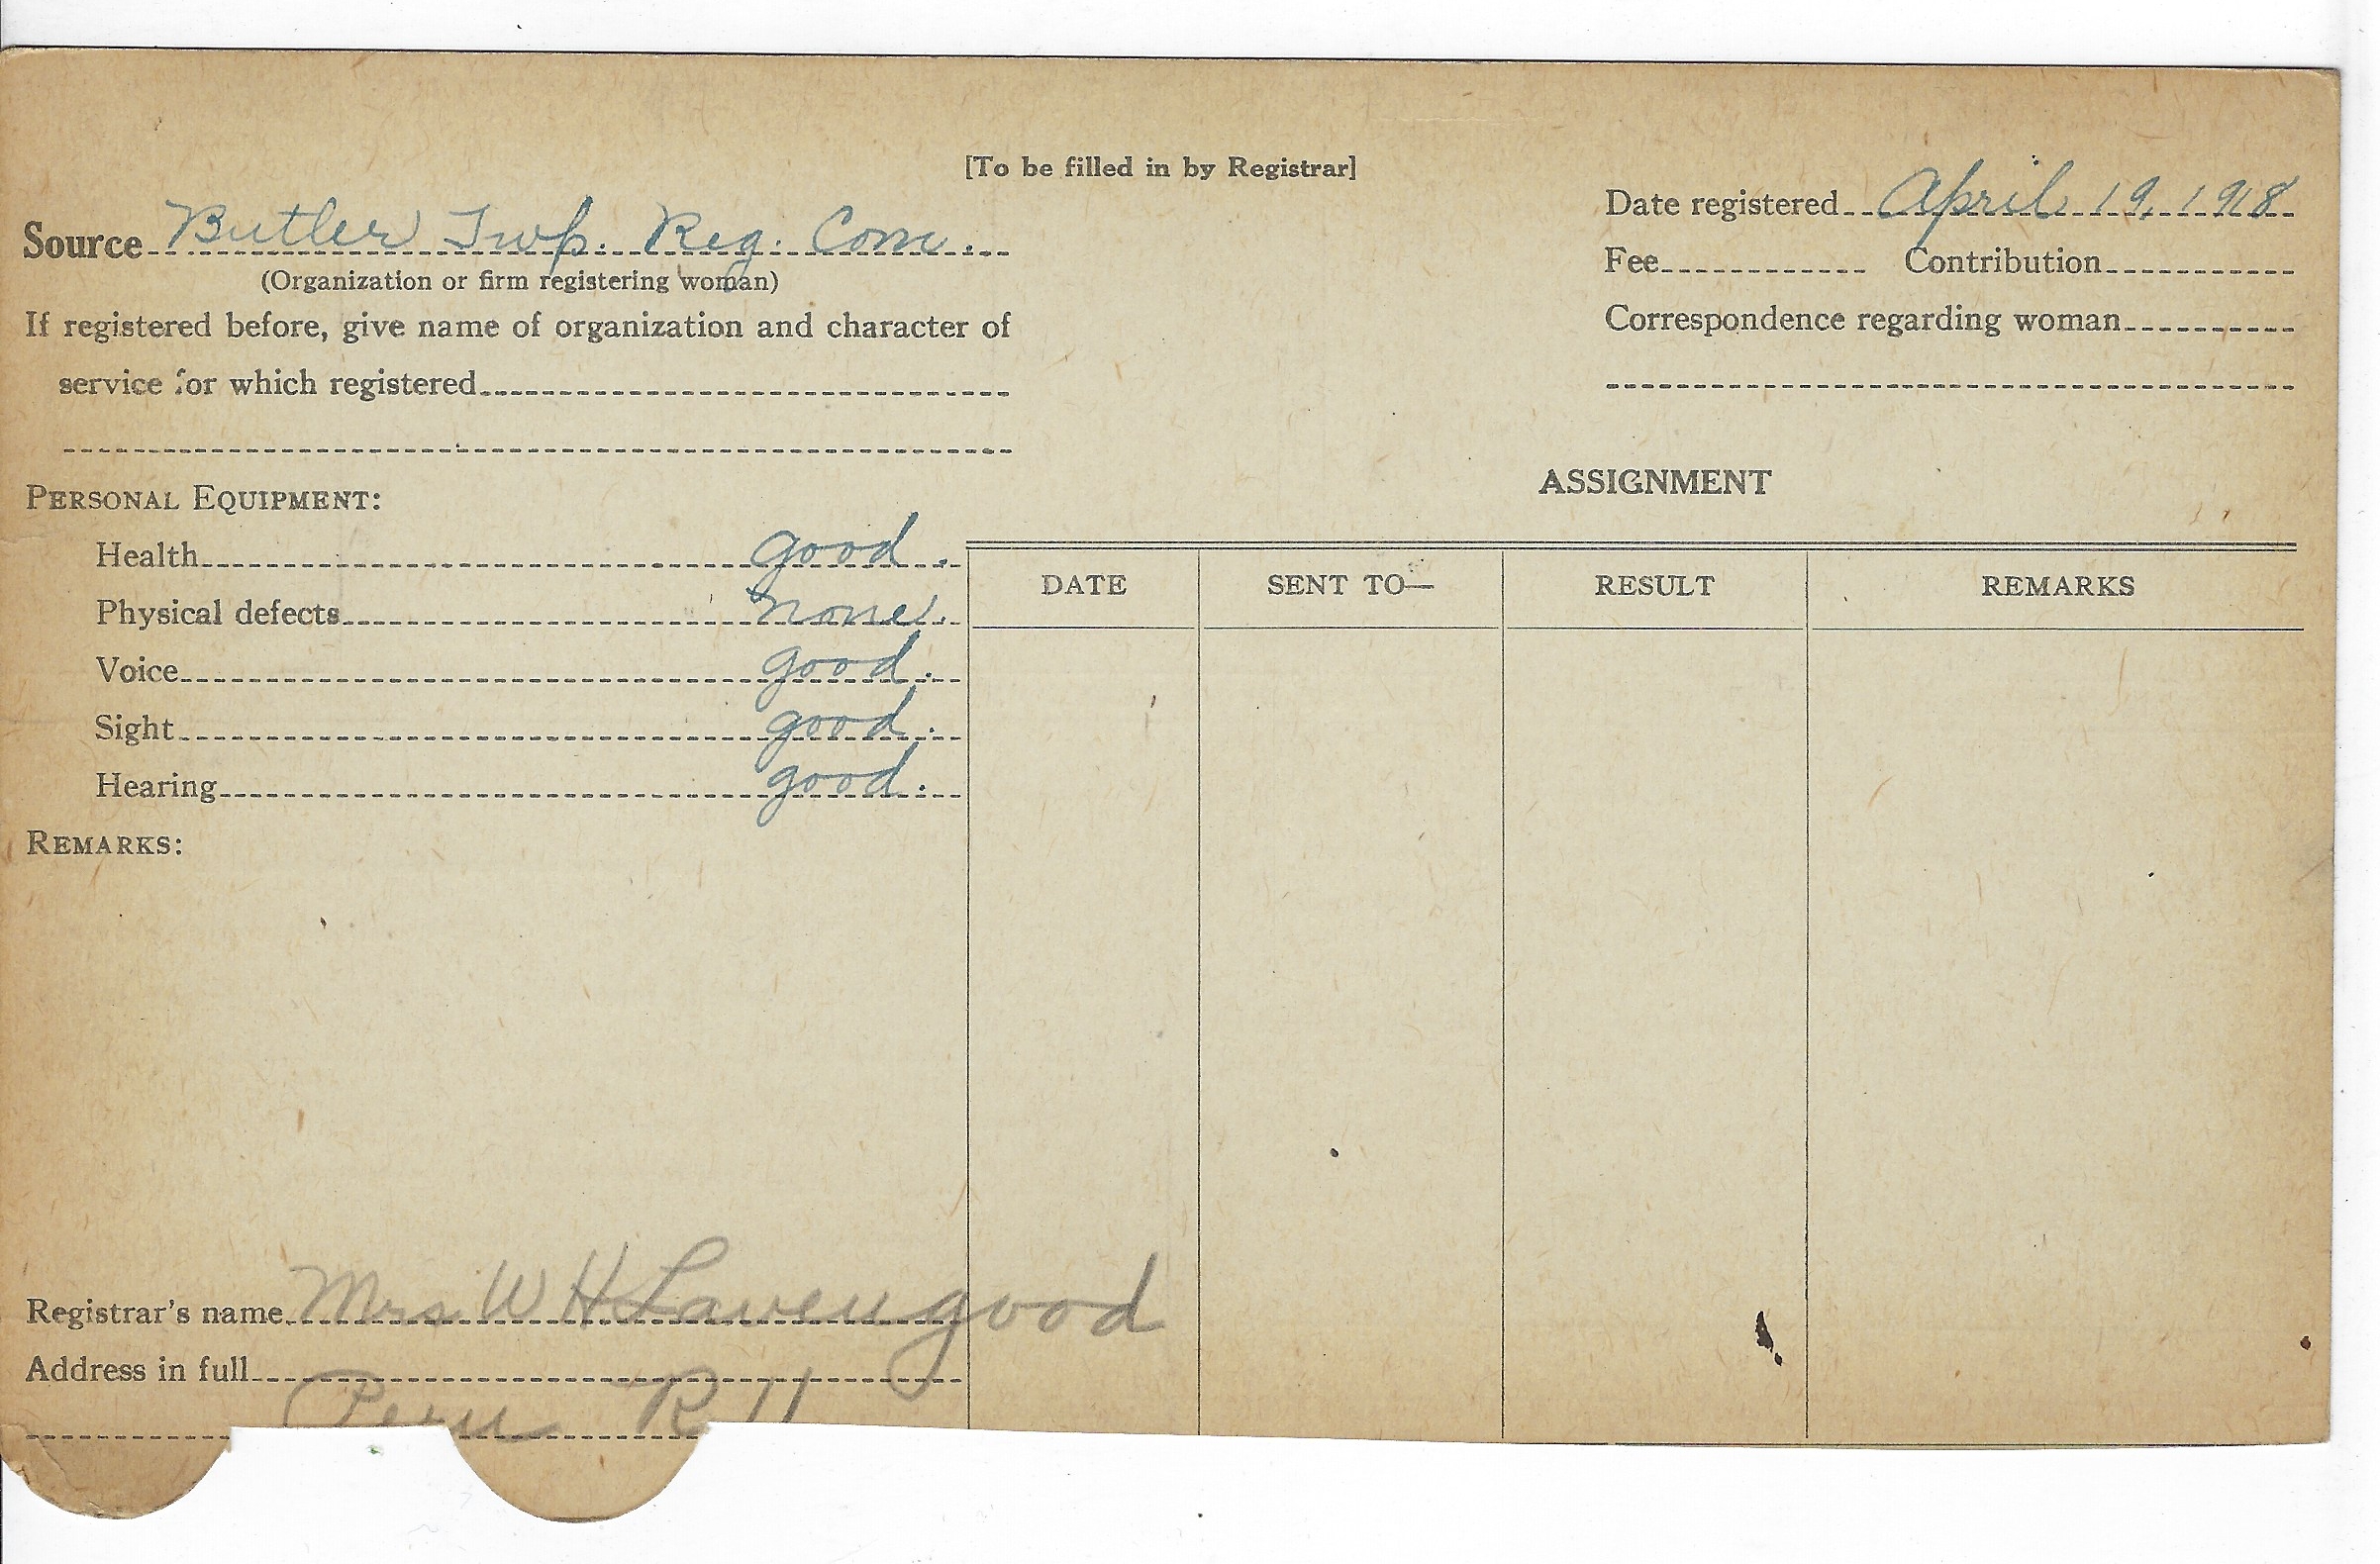 [To be filled in by Registrar]
Date registered April 19, 1918
Source Butler Twp. Reg. Com.
(Organization or firm registering woman)
Fee Contribution
If registered before, give name of organization and character of
Correspondence regarding woman
service for which registered
ASSIGNMENT
PERSONAL EQUIPMENT:
Health good.
Physical defects none.
Voice good.
Sight good.
Hearing good.
DATE SENT TO— RESULT REMARKS
REMARKS:
Registrar's name Mrs W H Lavengood
Address in full
Peru R 11